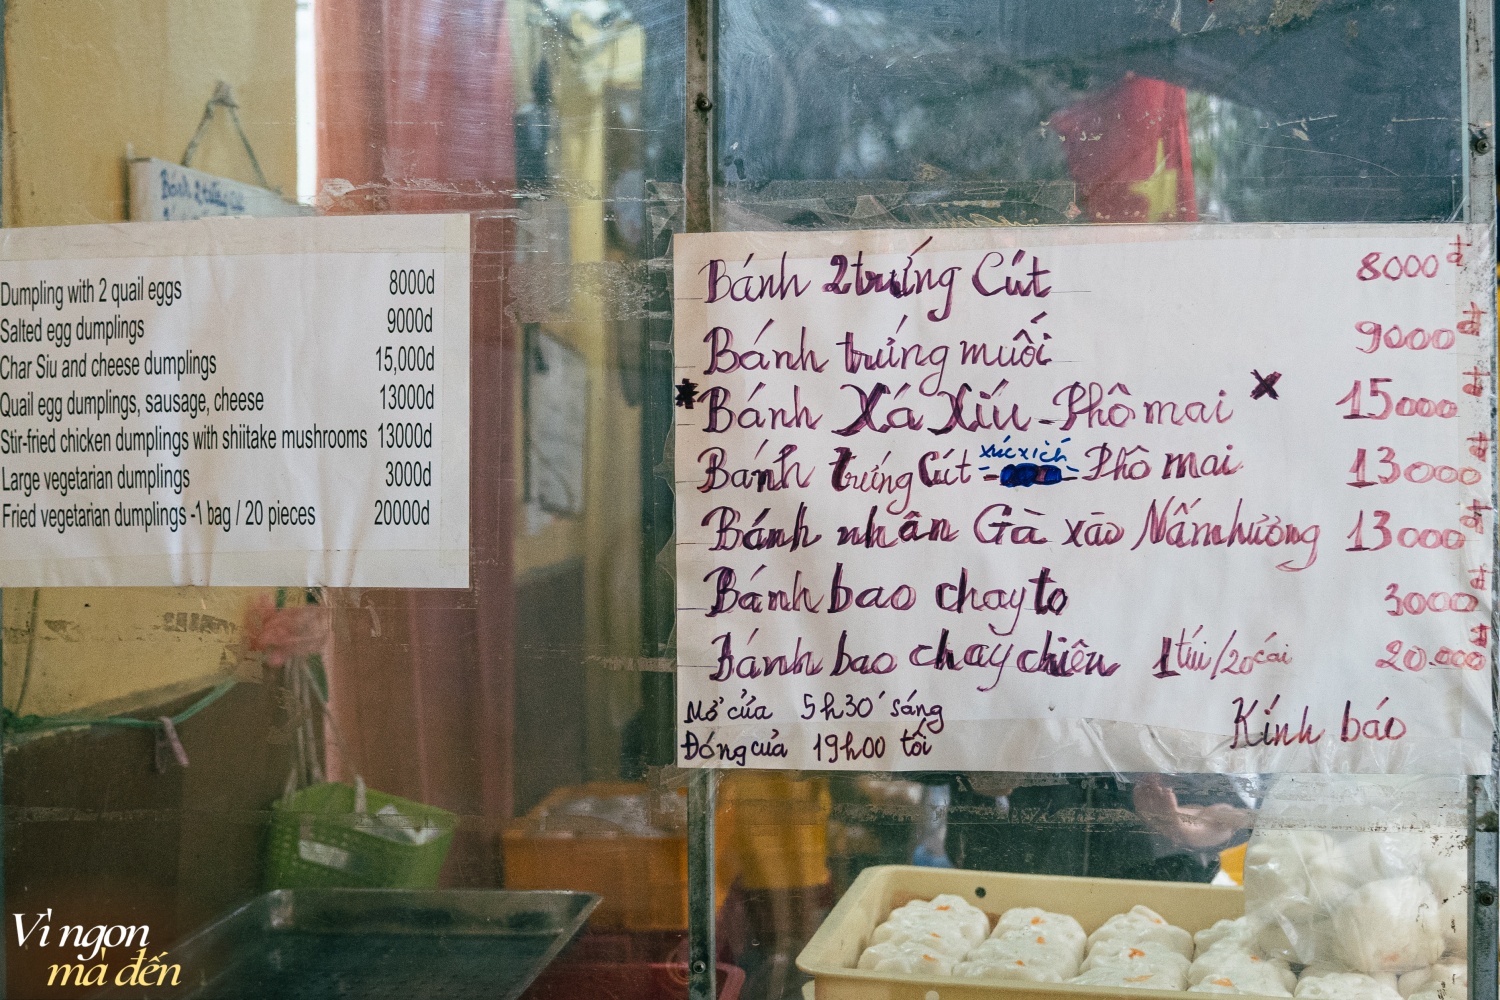 Bánh 2 trứng
Dumpling with 2 quail eggs 8000d
Salted egg dumplings 9000d
Char Siu and cheese dumplings 15,000d
Quail egg dumplings, sausage, cheese 13000d
Stir-fried chicken dumplings with shiitake mushrooms 13000d
Large vegetarian dumplings 3000d
Fried vegetarian dumplings -1 bag / 20 pieces 20000d
Bánh 2 trứng Cút 8000đ
Bánh trứng muối 9000đ
* Bánh Xá Xíu - Phô mai x 15000đ
xúc xích
Bánh trứng Cút - - Phô mai 13000đ
Bánh nhân Gà xào Nấm hương 13000đ
Bánh bao chay to 3000đ
Bánh bao chay chiên 1 túi/20 cái 20.000đ
Mở cửa 5h30' sáng
Đóng cửa 19h00 tối
Kính báo
Vì ngon
mà đến